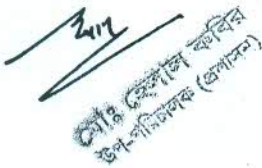 মোঃ হেলাল কবির
উপ-পরিচালক (প্রশাসন)